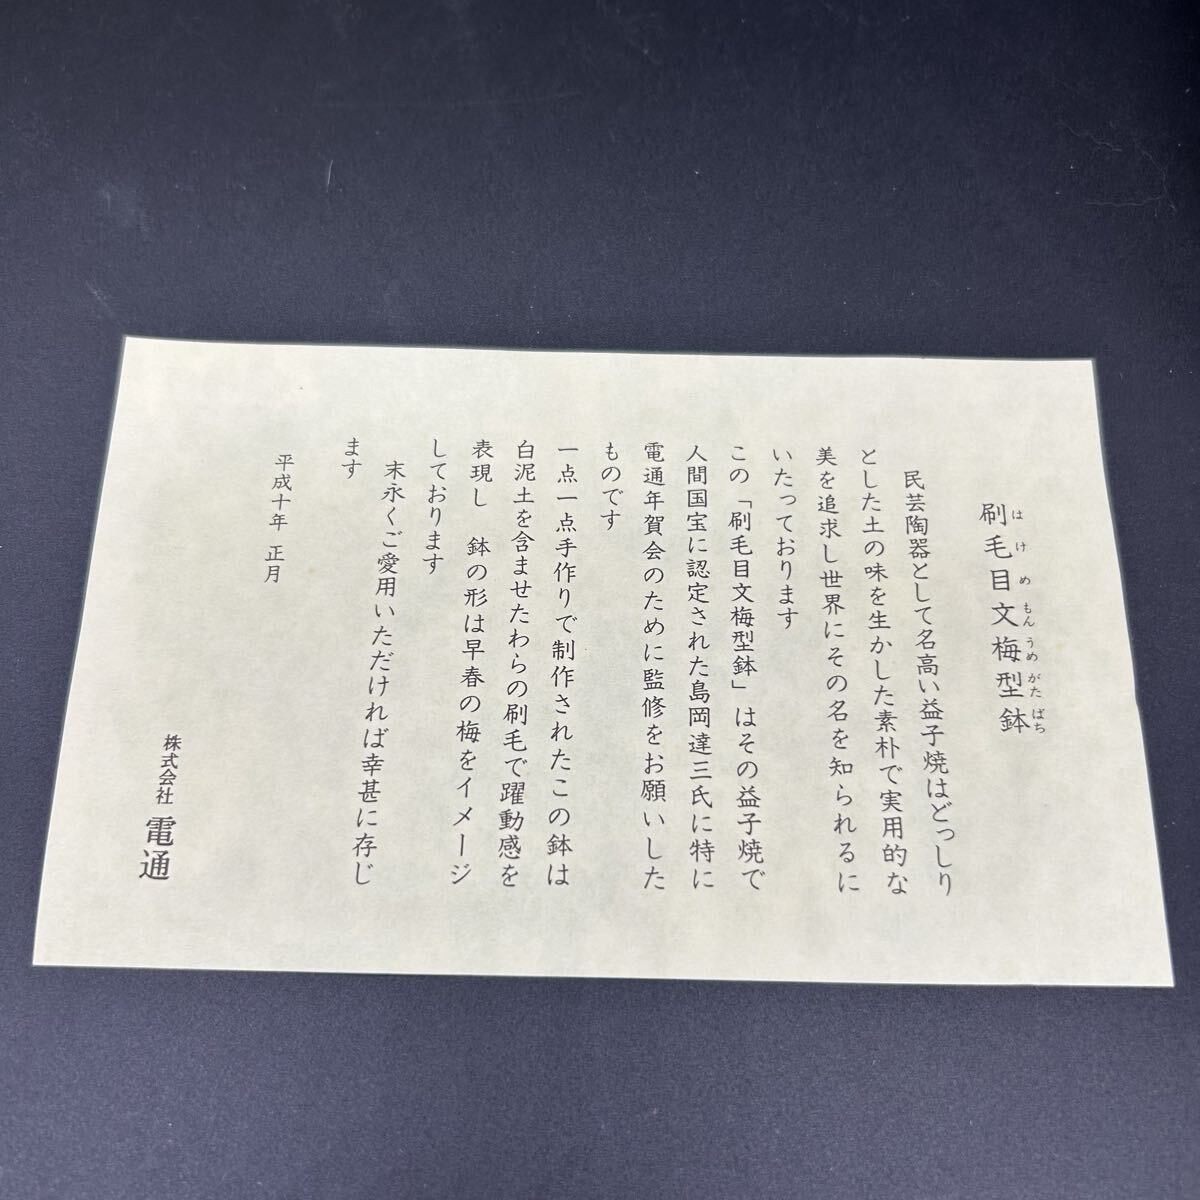 刷毛目文梅型鉢
はけめもんうめがたばち
民芸陶器として名高い益子焼はどっしり
とした土の味を生かした素朴で実用的な
美を追求し世界にその名を知られるに
いたっております
この「刷毛目文梅型鉢」はその益子焼で
人間国宝に認定された島岡達三氏に特に
電通年賀会のために監修をお願いした
ものです
一点一点手作りで制作されたこの鉢は
白泥土を含ませたわらの刷毛で躍動感を
表現し　鉢の形は早春の梅をイメージ
しております
末永くご愛用いただければ幸甚に存じ
ます
平成十年　正月
株式会社　電通